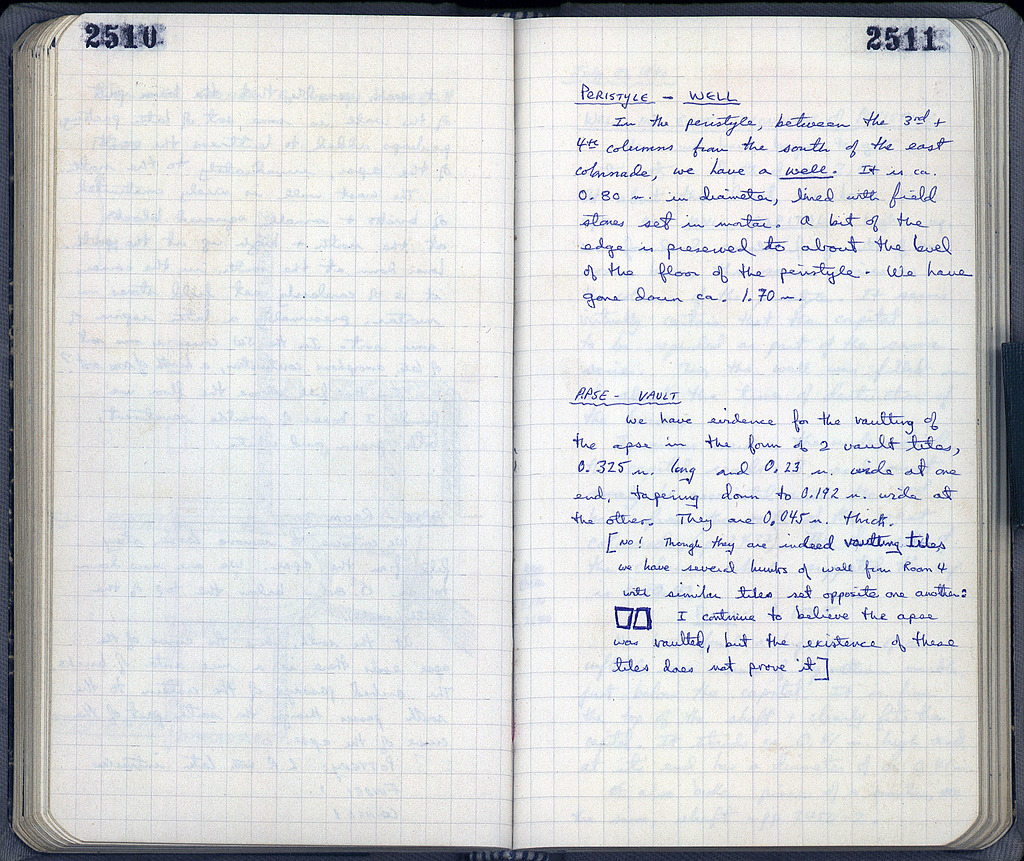 2510
2511
PERISTYLE - WELL
In the peristyle, between the 3rd +
4th columns from the south of the east
colonnade, we have a well. It is ca.
0.80 m. in diameter, lined with field
stones set in mortar. A bit of the
edge is preserved to about the level
of the floor of the peristyle. We have
gone down ca. 1.70 m.
APSE - VAULT
We have evidence for the vaulting of
the apse in the form of 2 vault tiles,
0.325 m. long and 0.23 m. wide at one
end, tapering down to 0.192 m. wide at
the other. They are 0.045 m. thick.
[No! Though they are indeed vaulting tiles
we have several hunks of wall from Room 4
with similar tiles set opposite one another:
I continue to believe the apse
was vaulted, but the existence of these
tiles does not prove it]